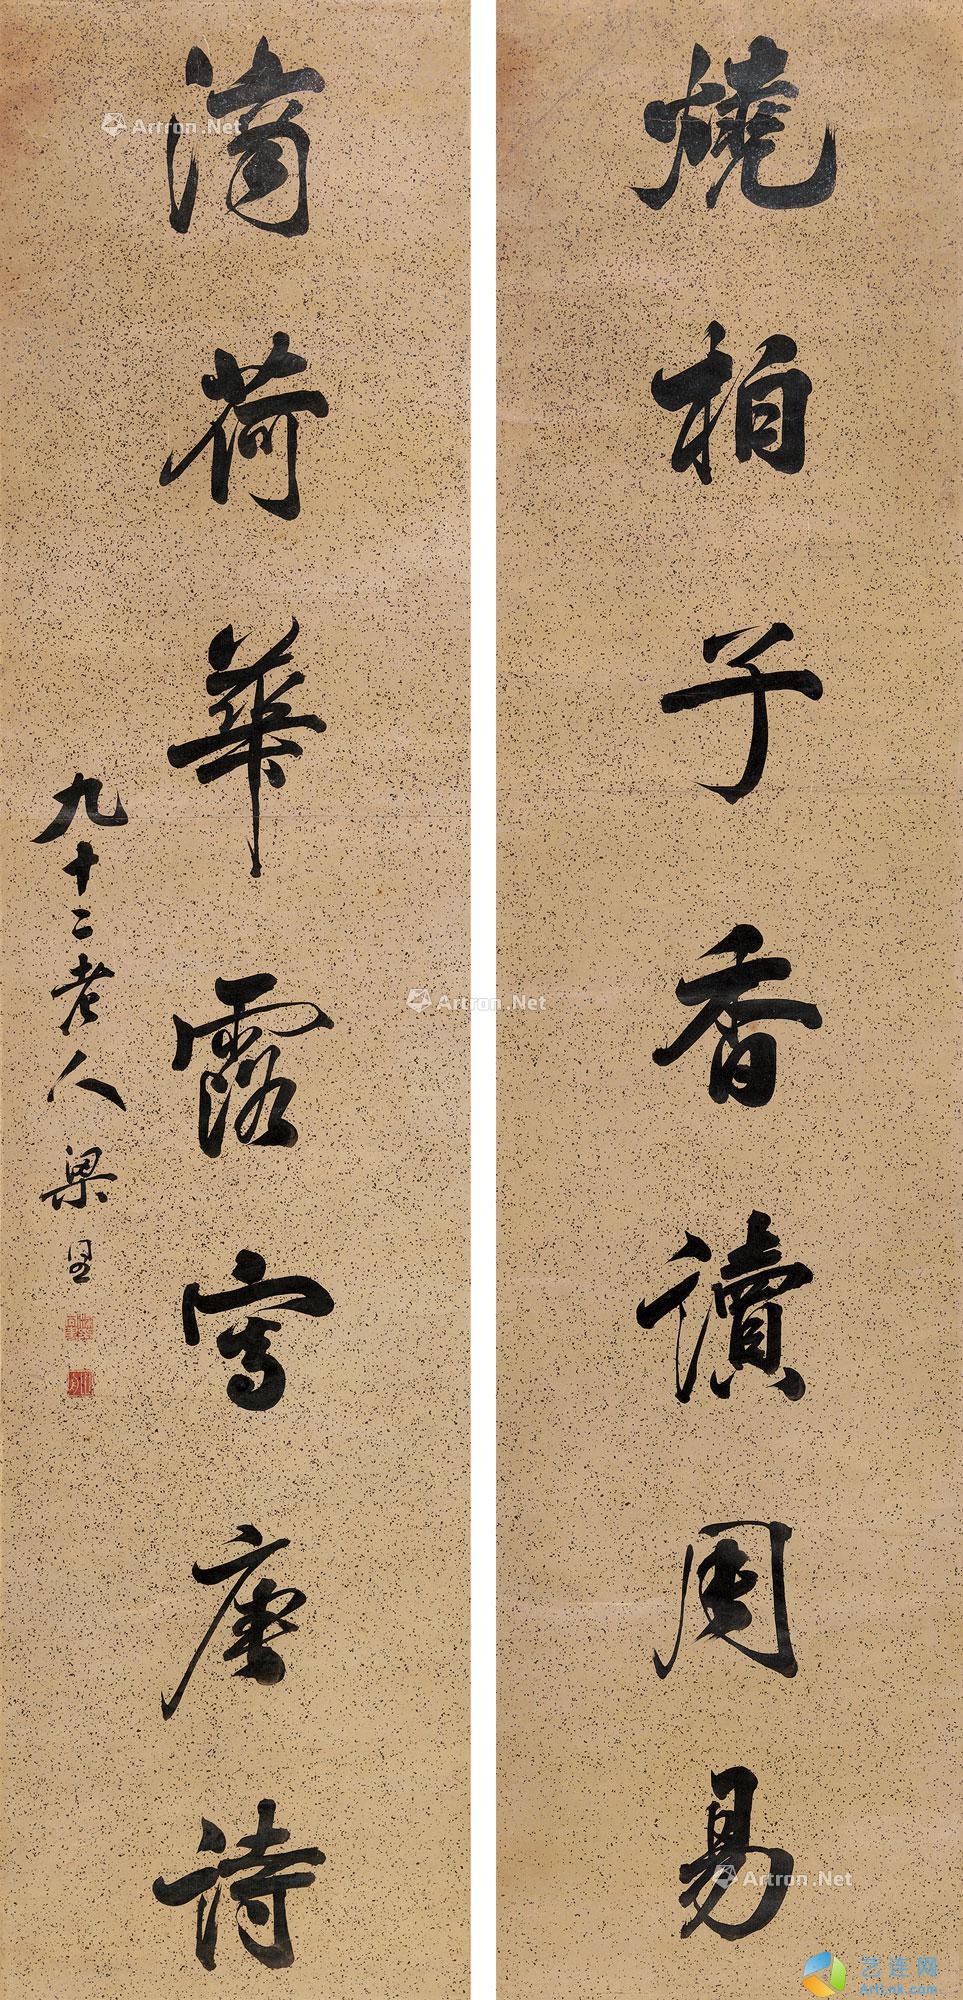 燒柏子香讀周易
滴荷華露寫唐詩
九十二老人梁
Artron.Net
Artron.Net
Artron.Net
艺连网
Artlnk.com